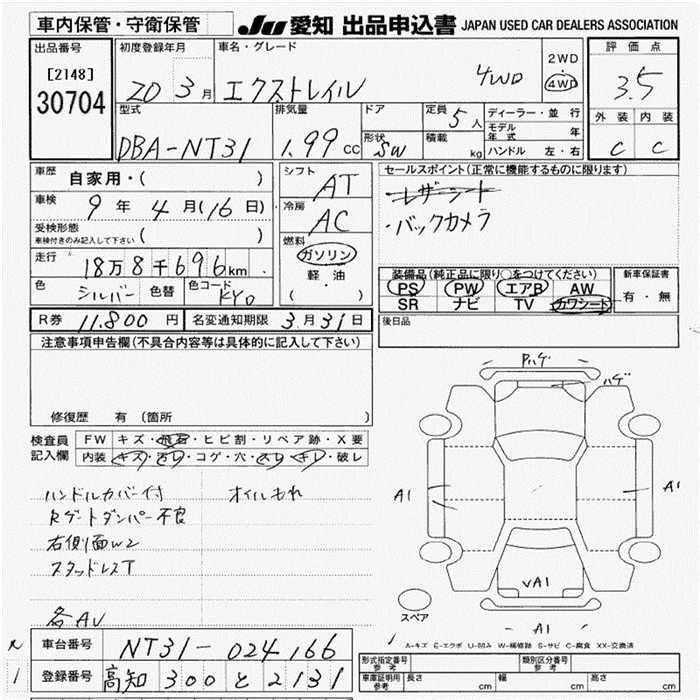 車内保管・守衛保管
JU 愛知 出品申込書 JAPAN USED CAR DEALERS ASSOCIATION
出品番号
[2148]
30704
初度登録年月
20 3月
車名・グレード
エクストレイル 4WD
2WD
4WD
評価点
3.5
外装 内装
C C
型式
DBA-NT31
排気量
1.99 cc
ドア
形状 SW
定員 5人
積載 kg
ディーラー・並行
モデル年式 年
ハンドル 左・右
車歴 自家用・( )
車検 9年 4月(16日)
受検形態
車検付きのみ記入して下さい ( )
走行 18万8千696km
色 シルバー 色替 色コード KY0
シフト AT
冷房 AC
燃料
ガソリン
軽・油
( )
セールスポイント(正常に機能するものに限ります)
レザーシート
・バックカメラ
装備品(純正品に限り○をつけてください)
PS PW エアB AW
SR ナビ TV カワシート
新車保証書
有・無
R券 11.800円 名変通知期限 3月31日
後日品
注意事項申告欄(不具合内容等は具体的に記入して下さい)
修復歴 有 (箇所
検査員記入欄
FW キズ・飛石・ヒビ割・リペア跡・X要
内装 キズ・汚レ・コゲ・穴・スレ・キレ・破レ
ハンドルカバー付 オイルもれ
Rゲートダンパー不良
右側面W2
スタッドレスT
各AU
Pハゲ
ハゲ
A1
A1
VA1
A1
スペア
A-キズ E-エクボ U-凹み W-補修跡 S-サビ C-腐食 XX-交換済
車台番号 NT31-024166
登録番号 高知 300 と 2131
形式指定番号 参考
類別区分番号 参考
車庫証明用 参考 長さ cm 幅 cm 高さ cm